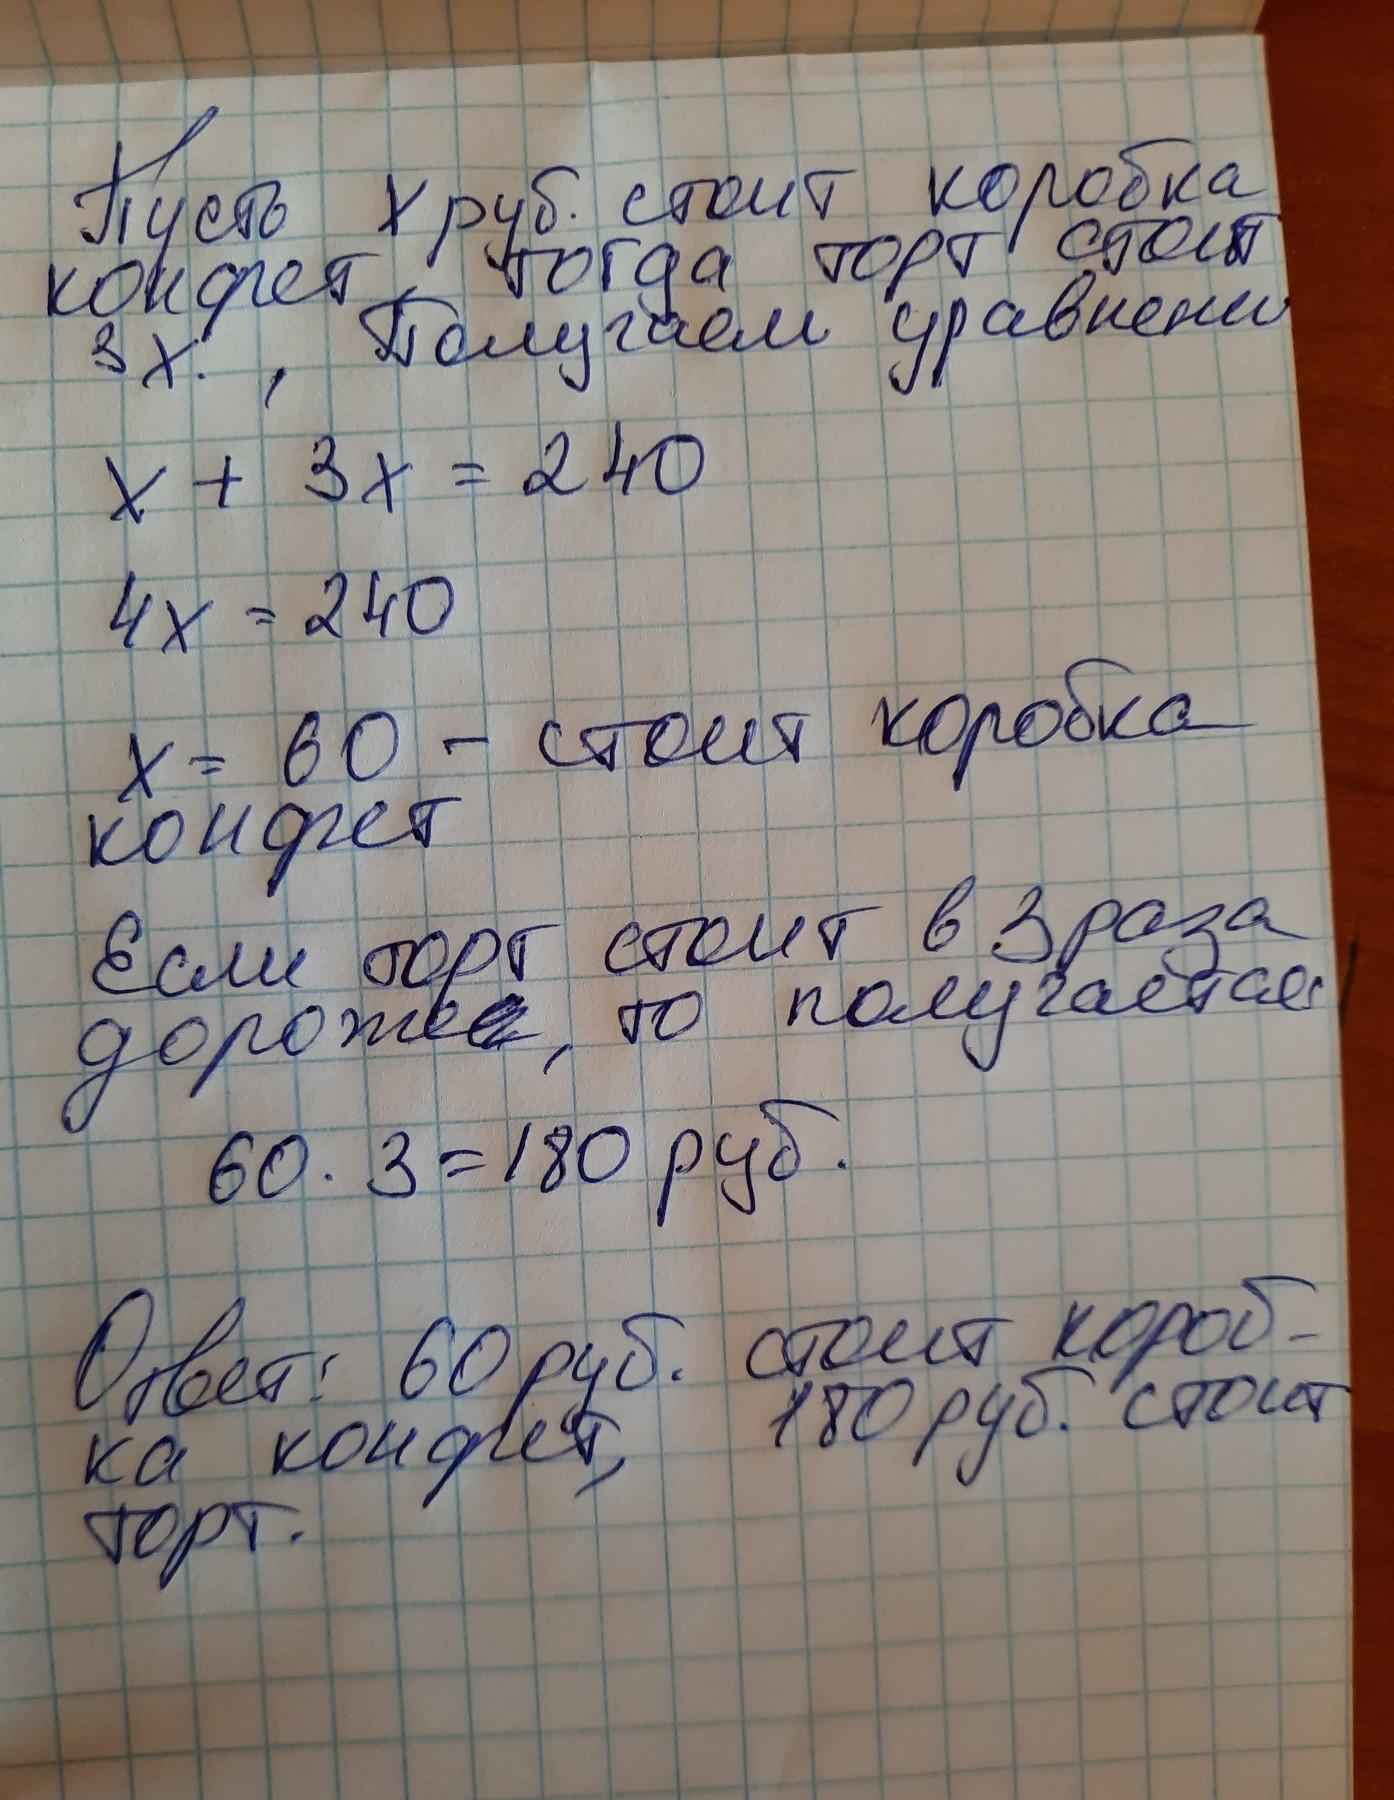 Пусть х руб. стоит коробка
конфет, тогда торт стоит
3х. , Получаем уравнени
х + 3х = 240
4х = 240
х = 60 - стоит коробка
конфет
Если торт стоит в 3 раза
дороже, то получается
60 · 3 = 180 руб.
Ответ: 60 руб. стоит короб-
ка конфет, 180 руб. стоит
торт.